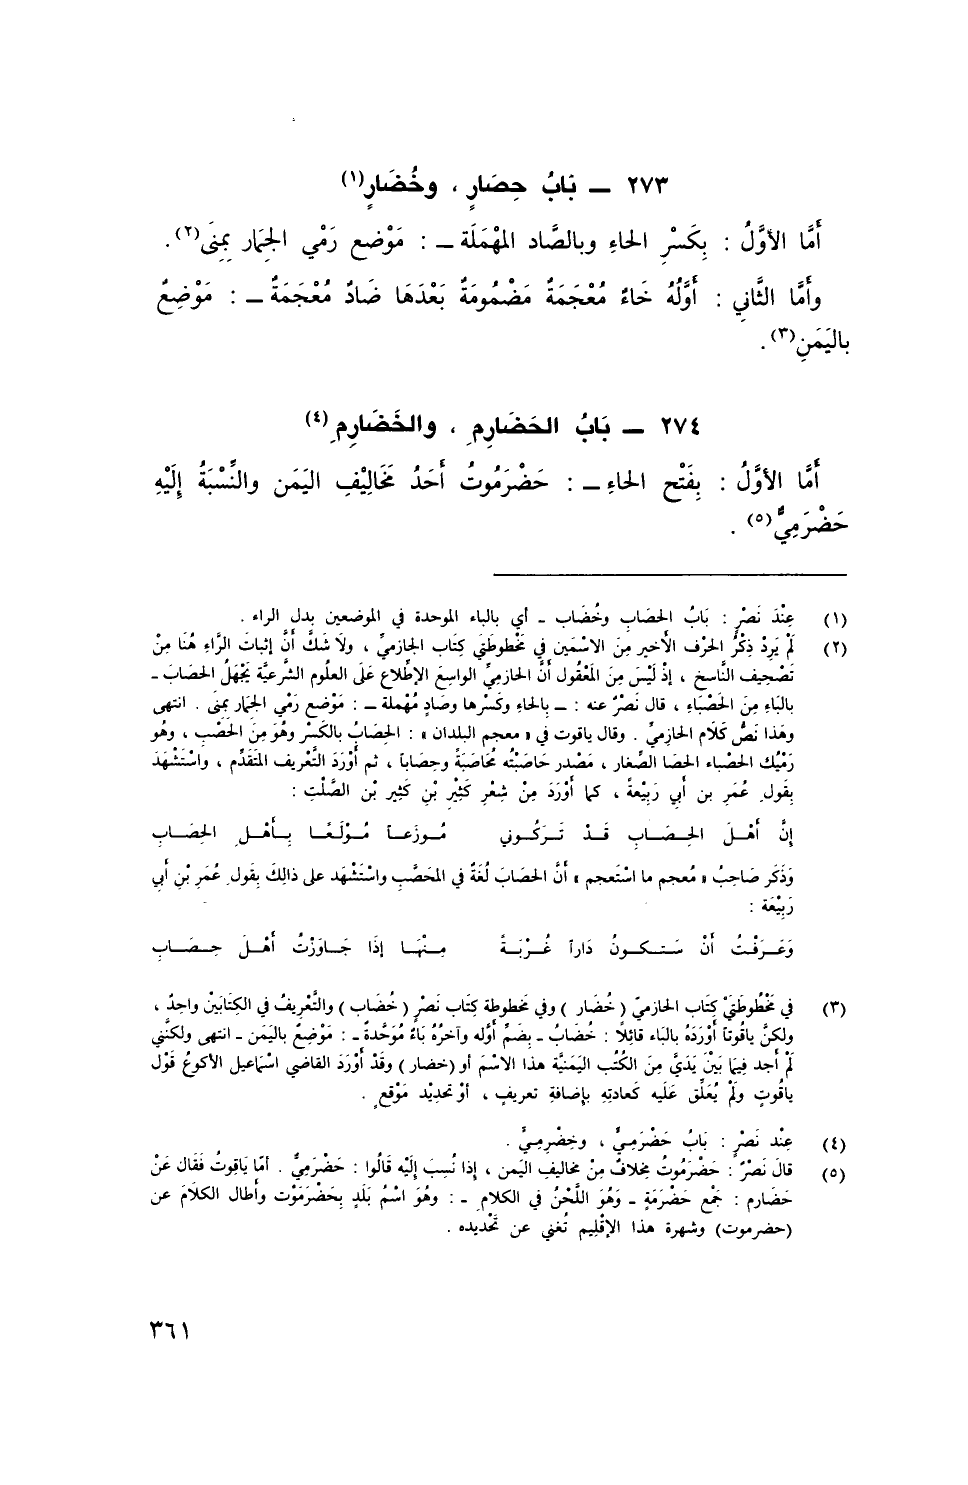 ٢٧٣ — بَابُ حِصَارٍ ، وخُضَارٍ(١)
أَمَّا الأوَّلُ : بِكَسْرِ الحاءِ وبالصَّاد المُهْمَلَة — : مَوْضع رَمْي الجِمَار بمِنَى(٢) .
وأَمَّا الثَّانِي : أَوَّلُهُ خَاءٌ مُعْجَمَةٌ مَضْمُومَةٌ بَعْدَهَا ضَادٌ مُعْجَمَةٌ — : مَوْضِعٌ
باليَمَنِ(٣) .
٢٧٤ — بَابُ الحَضَارِمِ ، والخَضَارِمِ(٤)
أَمَّا الأوَّلُ : بِفَتْحِ الحاءِ — : حَضْرَمُوتُ أَحَدُ مَخَالِيْفِ اليَمَن والنِّسْبَةُ إِلَيْهِ
حَضْرَمِيٌّ(٥) .
(١) عِنْدَ نَصْرٍ : بَابُ الحِصَابِ وخُضَاب - أي بالباء الموحدة في الموضعين بدل الراء .
(٢) لَمْ يَرِدْ ذِكْرُ الحَرْف الأخير مِنَ الاسْمَين في مَخْطوطَتَي كِتَاب الحازميِّ ، ولَا شَكَّ أَنَّ إثباتَ الرَّاء هُنَا مِنْ
تَصْحِيف النَّاسخ ، إذْ لَيْسَ مِنَ المَعْقُول أَنَّ الحَازميَّ الواسِعَ الإطِّلاع عَلَى العلُوم الشَّرعيَّة يَجْهَلُ الحصَابَ -
بالبَاءِ مِنَ الحَصْبَاءِ ، قال نَصْرٌ عنه : — بِالحاءِ وكَسْرها وصَادٍ مُهْملة — : مَوْضع رَمْي الجِمَار بمِنَى . انتهى
وهَذا نَصُّ كَلَام الحَازميِّ . وقال ياقوت في « معجم البلدان » : الحِصَابُ بالكَسْر وهُوَ مِنَ الحَصْبِ ، وهُو
رَمْيُكَ الحَصْباء الحصَا الصِّغار ، مَصْدر حَاصَبْتُه مُحَاصَبَةً وحِصَاباً ، ثم أَوْرَدَ التَّعْريف المتَقَدِّم ، واسْتَشْهَدَ
بِقَولِ عُمَر بن أَبي رَبِيْعةَ ، كما أَوْرَدَ مِنْ شِعْر كَثِيْر بْنِ كَثِير بْن الصَّلْتِ :
إِنَّ أَهْـلَ الحِصَـابِ قَـدْ تَـرَكُـوني مُـوزَعـاً مُـوْلَعًـا بِـأَهْـلِ الحِصَـابِ
وَذَكَر صَاحِبُ « مُعجم ما اسْتَعجم » أَنَّ الحصَابَ لُغَةٌ في المَحَصَّب واسْتَشْهَد على ذالِكَ بِقَولِ عُمَر بْنِ أَبي
رَبِيْعَة :
وَعَـرَفْـتُ أَنْ سَـتـكـونُ دَاراً غُـرْبَـةً مِـنْهَـا إِذَا جَـاوَزْتُ أَهْـلَ حِـصَـابِ
(٣) في مَخْطُوطَتَيْ كِتَاب الحَازميّ ( خُضَار ) وفي مَخطوطة كِتَاب نَصْر ( خُضَاب ) والتَّعْريفُ في الكِتَابَيْن واحدٌ ،
ولكنَّ ياقُوتاً أَوْرَدَهُ بالبَاء قائِلًا : خُضَابُ - بِضَمِّ أَوَّله وآخرُهُ بَاءٌ مُوَحَّدةٌ - : مَوْضِعٌ باليَمَن - انتهى ولكنَّني
لَمْ أَجد فِيمَا بَيْنَ يَدَيَّ مِنَ الكُتُب اليَمنيَّة هذا الاسْمَ أو (خضار ) وقَدْ أَوْرَدَ القاضي اسْمَاعيل الأكوعُ قَوْل
ياقُوتٍ ولَمْ يُعَلِّق عَلَيه كَعادتِه بِإضافةِ تعريفٍ ، أوْ تحدِيْد مَوْقع .
(٤) عِنْد نَصْرٍ : بَابُ حَضْرَمِيٍّ ، وخِضْرِمِيٍّ .
(٥) قالَ نَصْرٌ : حَضْرَمُوتُ مِخلافٌ مِنْ مخاليفِ اليَمن ، إذا نُسِبَ إلَيْه قَالُوا : حَضْرَمِيٌّ . أمّا ياقِوتُ فَقَال عَنْ
حَضَارم : جَمْع حَضْرَمَةٍ - وَهُوَ اللَّحْنُ في الكلامِ - : وهُوَ اسْمُ بَلَدٍ بِحَضْرَمَوْت وأَطال الكلَامَ عن
(حضرموت) وشهرة هذا الإقْلِيم تُغني عن تَحْديده .
٣٦١